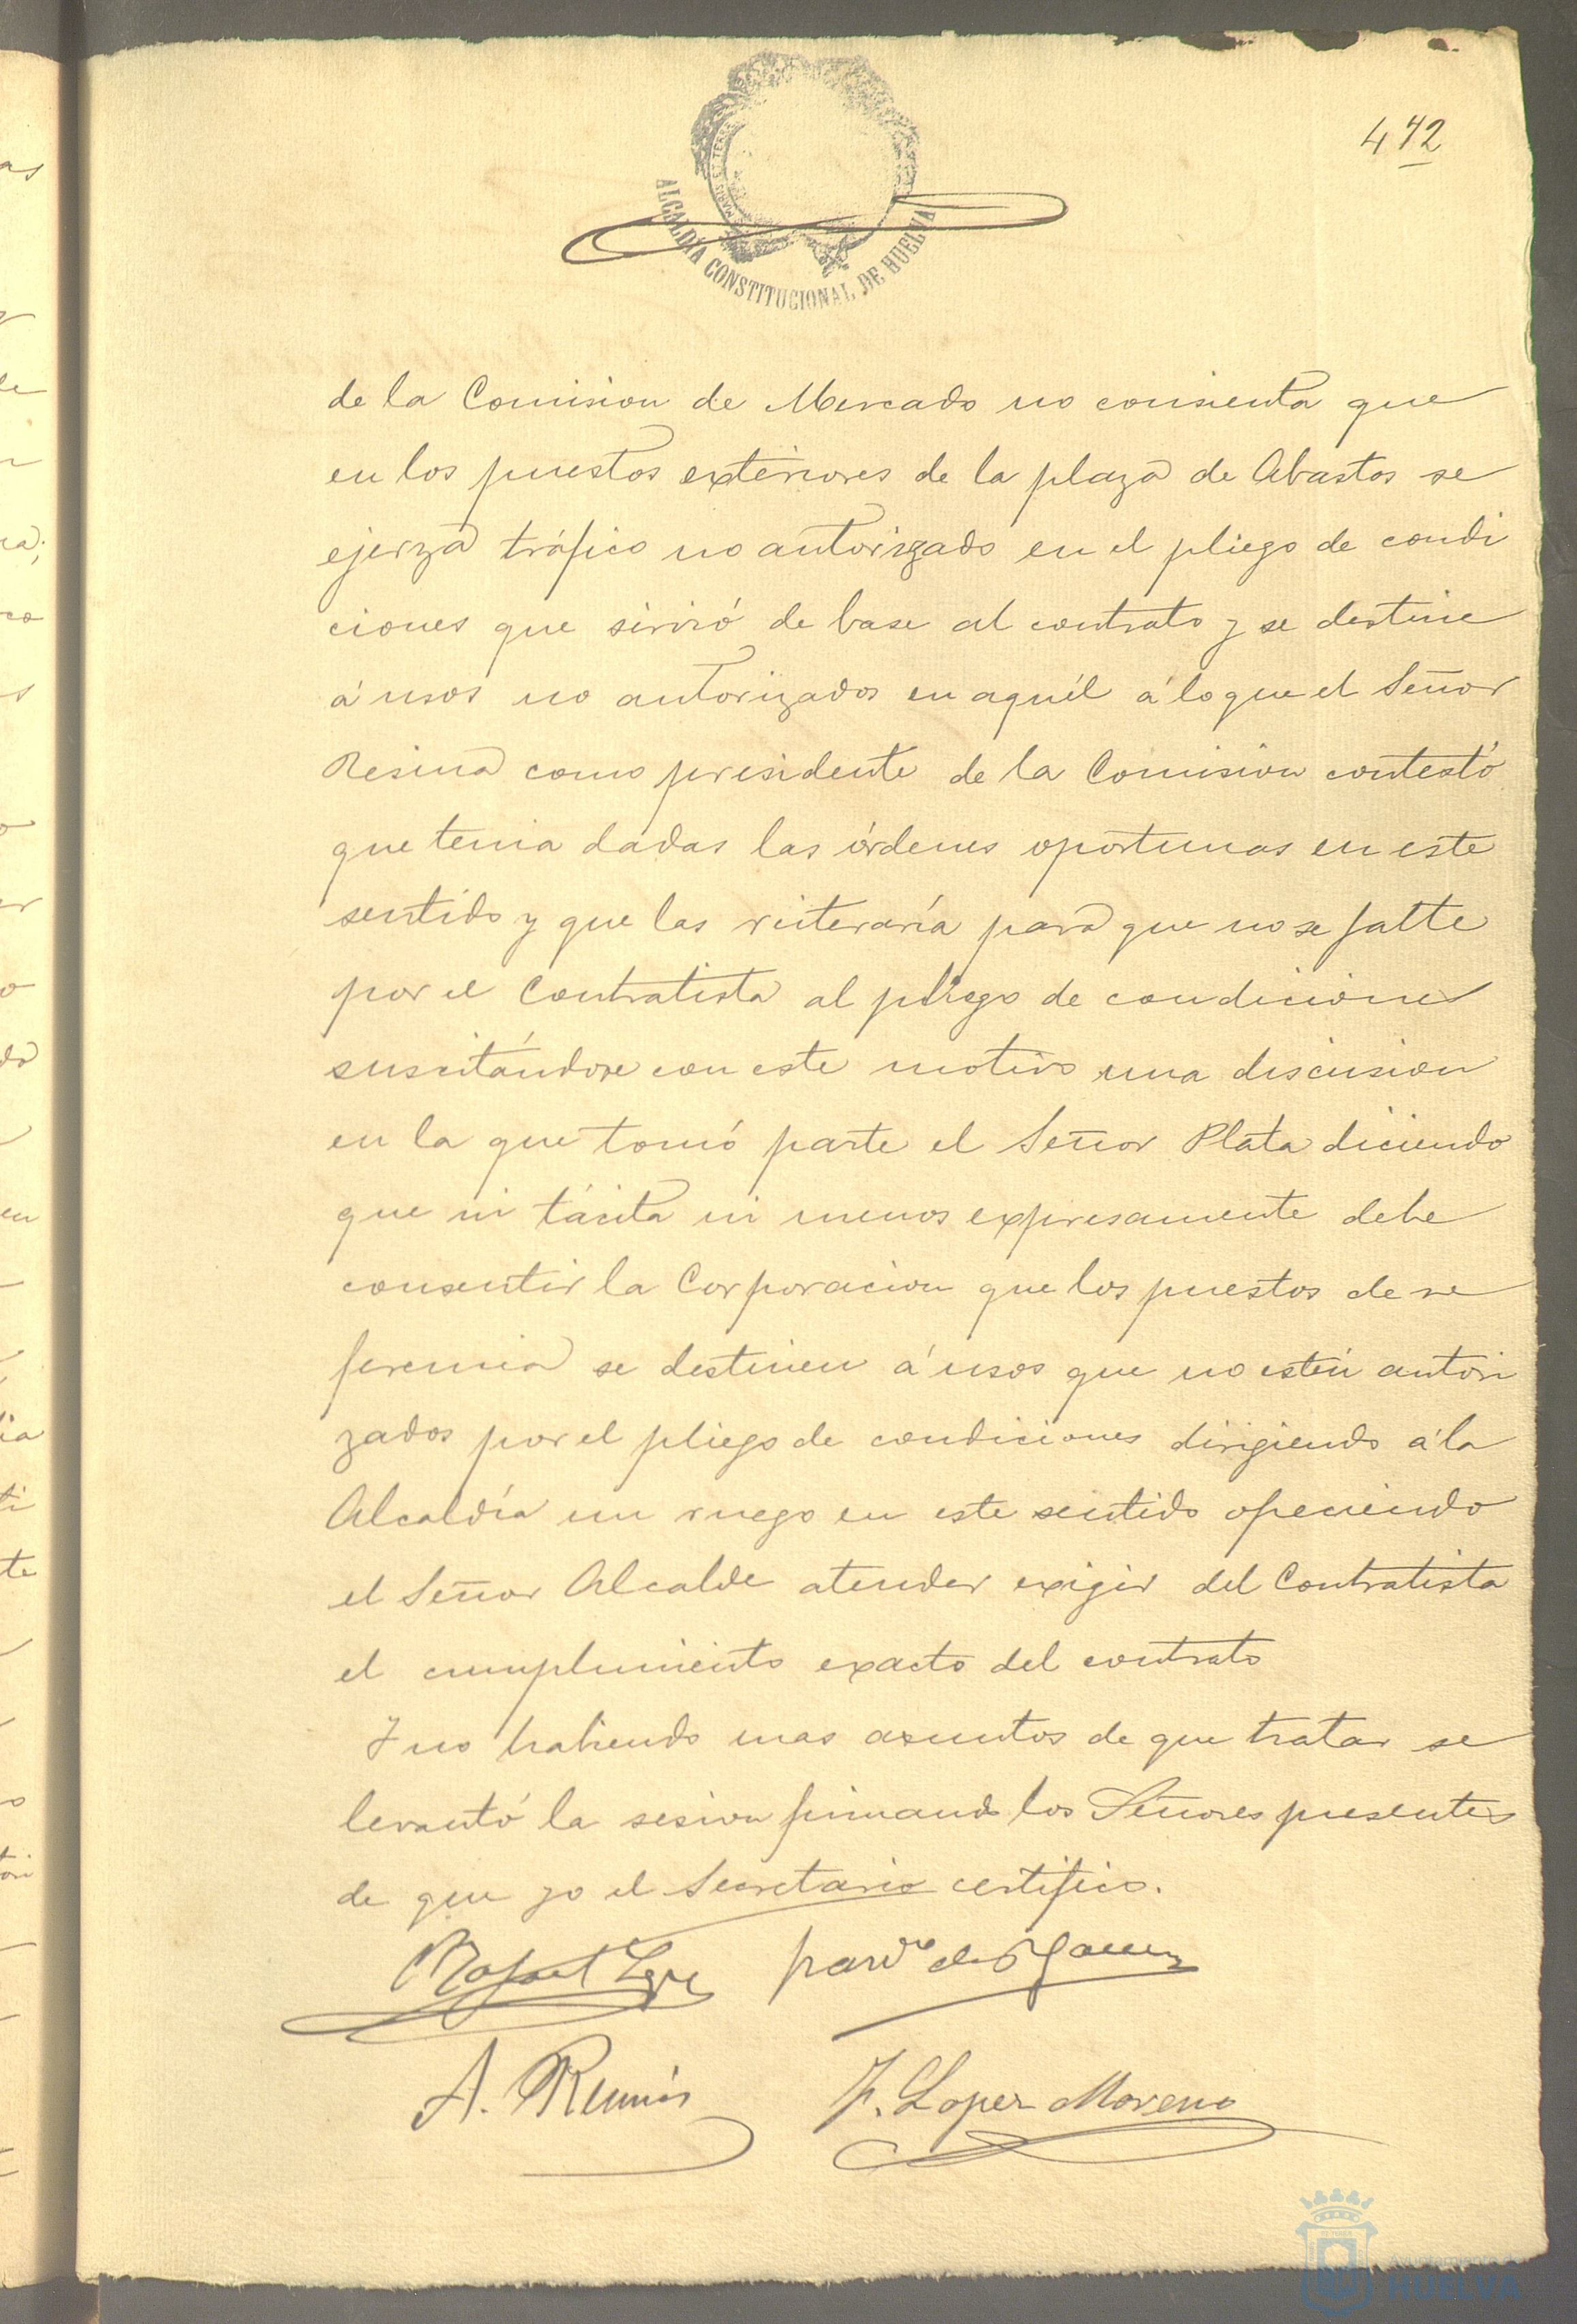 442
ALCALDÍA CONSTITUCIONAL DE HUELVA
de la Comision de Mercado no consienta que
en los puestos exteriores de la plaza de Abastos se
ejerza tráfico no autorizado en el pliego de condi
ciones que sirvió de base al contrato y se destine
á usos no autorizados en aquél á lo que el Señor
Resina como presidente de la Comision contestó
que tenia dadas las órdenes oportunas en este
sentido y que las reiteraría para que no se falte
por el Contratista al pliego de condiciones
suscitándose con este motivo una discusion
en la que tomó parte el Señor Plata diciendo
que ni tácita ni menos expresamente debe
consentir la Corporacion que los puestos de re
ferencia se destinen á usos que no estén autori
zados por el pliego de condiciones dirigiendo á la
Alcaldía un ruego en este sentido ofreciendo
el Señor Alcalde atender exigir del Contratista
el cumplimiento exacto del contrato
Y no habiendo mas asuntos de que tratar se
levantó la sesion firmando los Señores presentes
de que yo el Secretario certifico.
Rafael
A.
F. Lopez Moreno
HUELVA